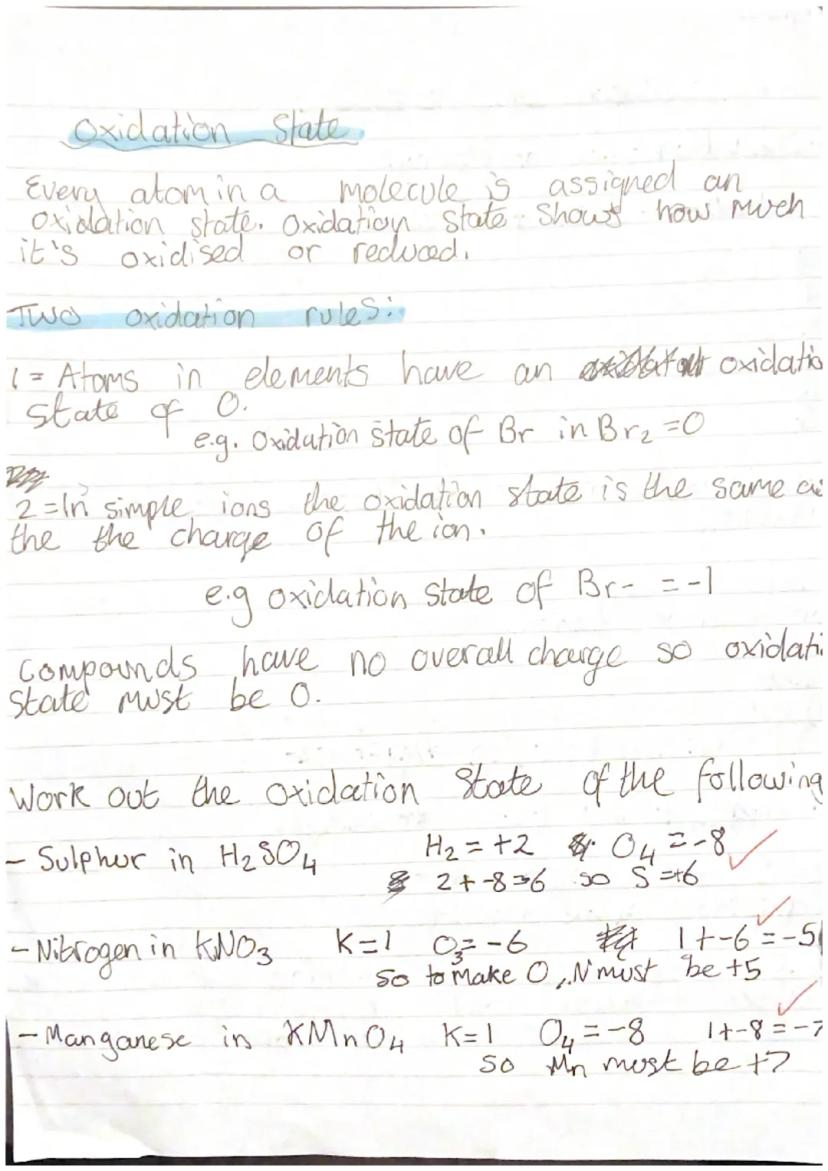 Oxidation State
Every atom in a molecule is assigned an
oxidation state. Oxidation state shows how much
it's oxidised or reduced.
Two oxidation rules:
1 = Atoms in elements have an oxidatio
state of 0.
e.g. Oxidation state of Br in Br₂ = 0
2 = In simple ions the oxidation state is the same as
the the charge of the ion.
e.g oxidation state of Br- = -1
Compounds have no overall charge so oxidati
state must be 0.
Work out the oxidation State of the following
- Sulphur in H₂SO₄ H₂ = +2 O₄ = -8
2 + -8 = 6 so S = +6
- Nitrogen in KNO₃ K = 1 O₃ = -6 1 + -6 = -5
So to make 0, N must be +5
- Manganese in KMnO₄ K = 1 O₄ = -8 1 + -8 = -7
So Mn must be +7